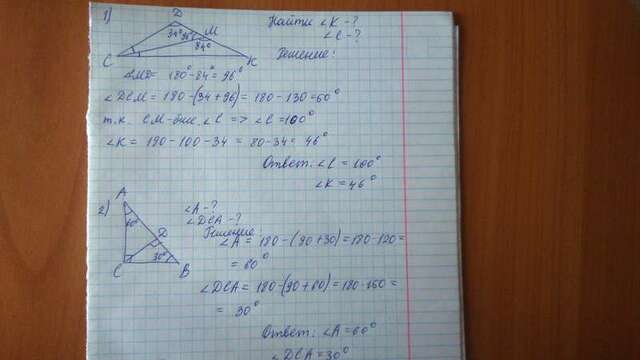 1)
Найти ∠K-?
∠C-?
C
D
M
K
34°
96°
84°
Решение:
∠DMC = 180°-84°=96°
∠DCM = 180-(34+96)=180-130=50°
т.к CM-бис. ∠C => ∠C=100°
∠K = 180-100-34 = 80-34=46°
Ответ: ∠C = 100°
∠K = 46°
2)
A
C
D
B
60°
30°
∠A-?
∠DCA-?
Решение
∠A = 180-(90+30)=180-120=
= 60°
∠DCA = 180-(90+60)=180-150=
= 30°
Ответ: ∠A=60°
∠DCA=30°